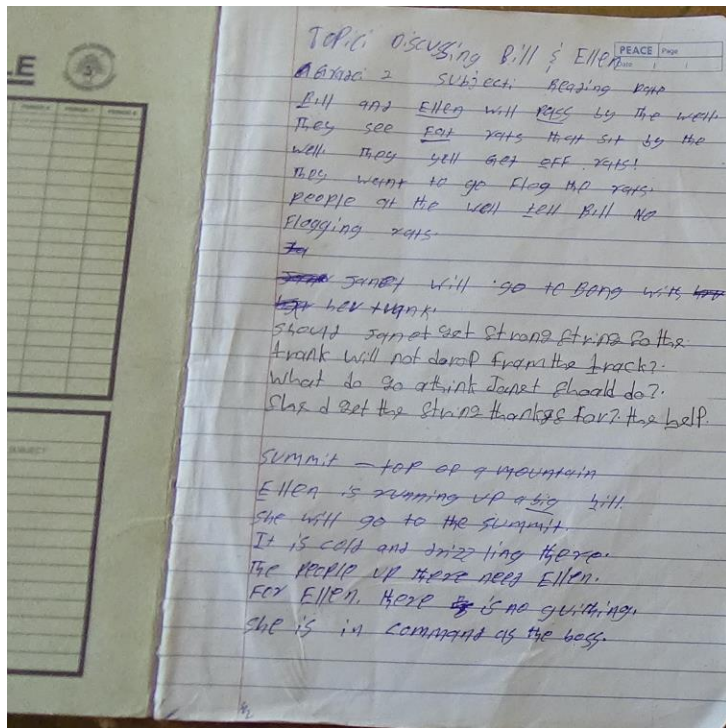 LE
SUBJECT
PEACE Page
Date
Topic: Discussing Bill & Ellen
Grade: 2 Subject: Reading rate
Bill and Ellen will pass by the well.
They see Fat rats that sit by the
well. They yell Get off rats!
They want to go Flog the rats.
people at the well tell Bill No
Flogging rats.
Janet will go to Bong with
her trunk.
Should Janet get strong string so the
trank will not dorop from the track?.
What do go athink Janet should do?.
She d get the string thankgs for? the help.
Summit – top of a mountain
Ellen is running up a big hill.
she will go to the summit.
It is cold and drizzling there.
The people up there need Ellen.
For Ellen, there is no quithing.
she is in command as the boss.